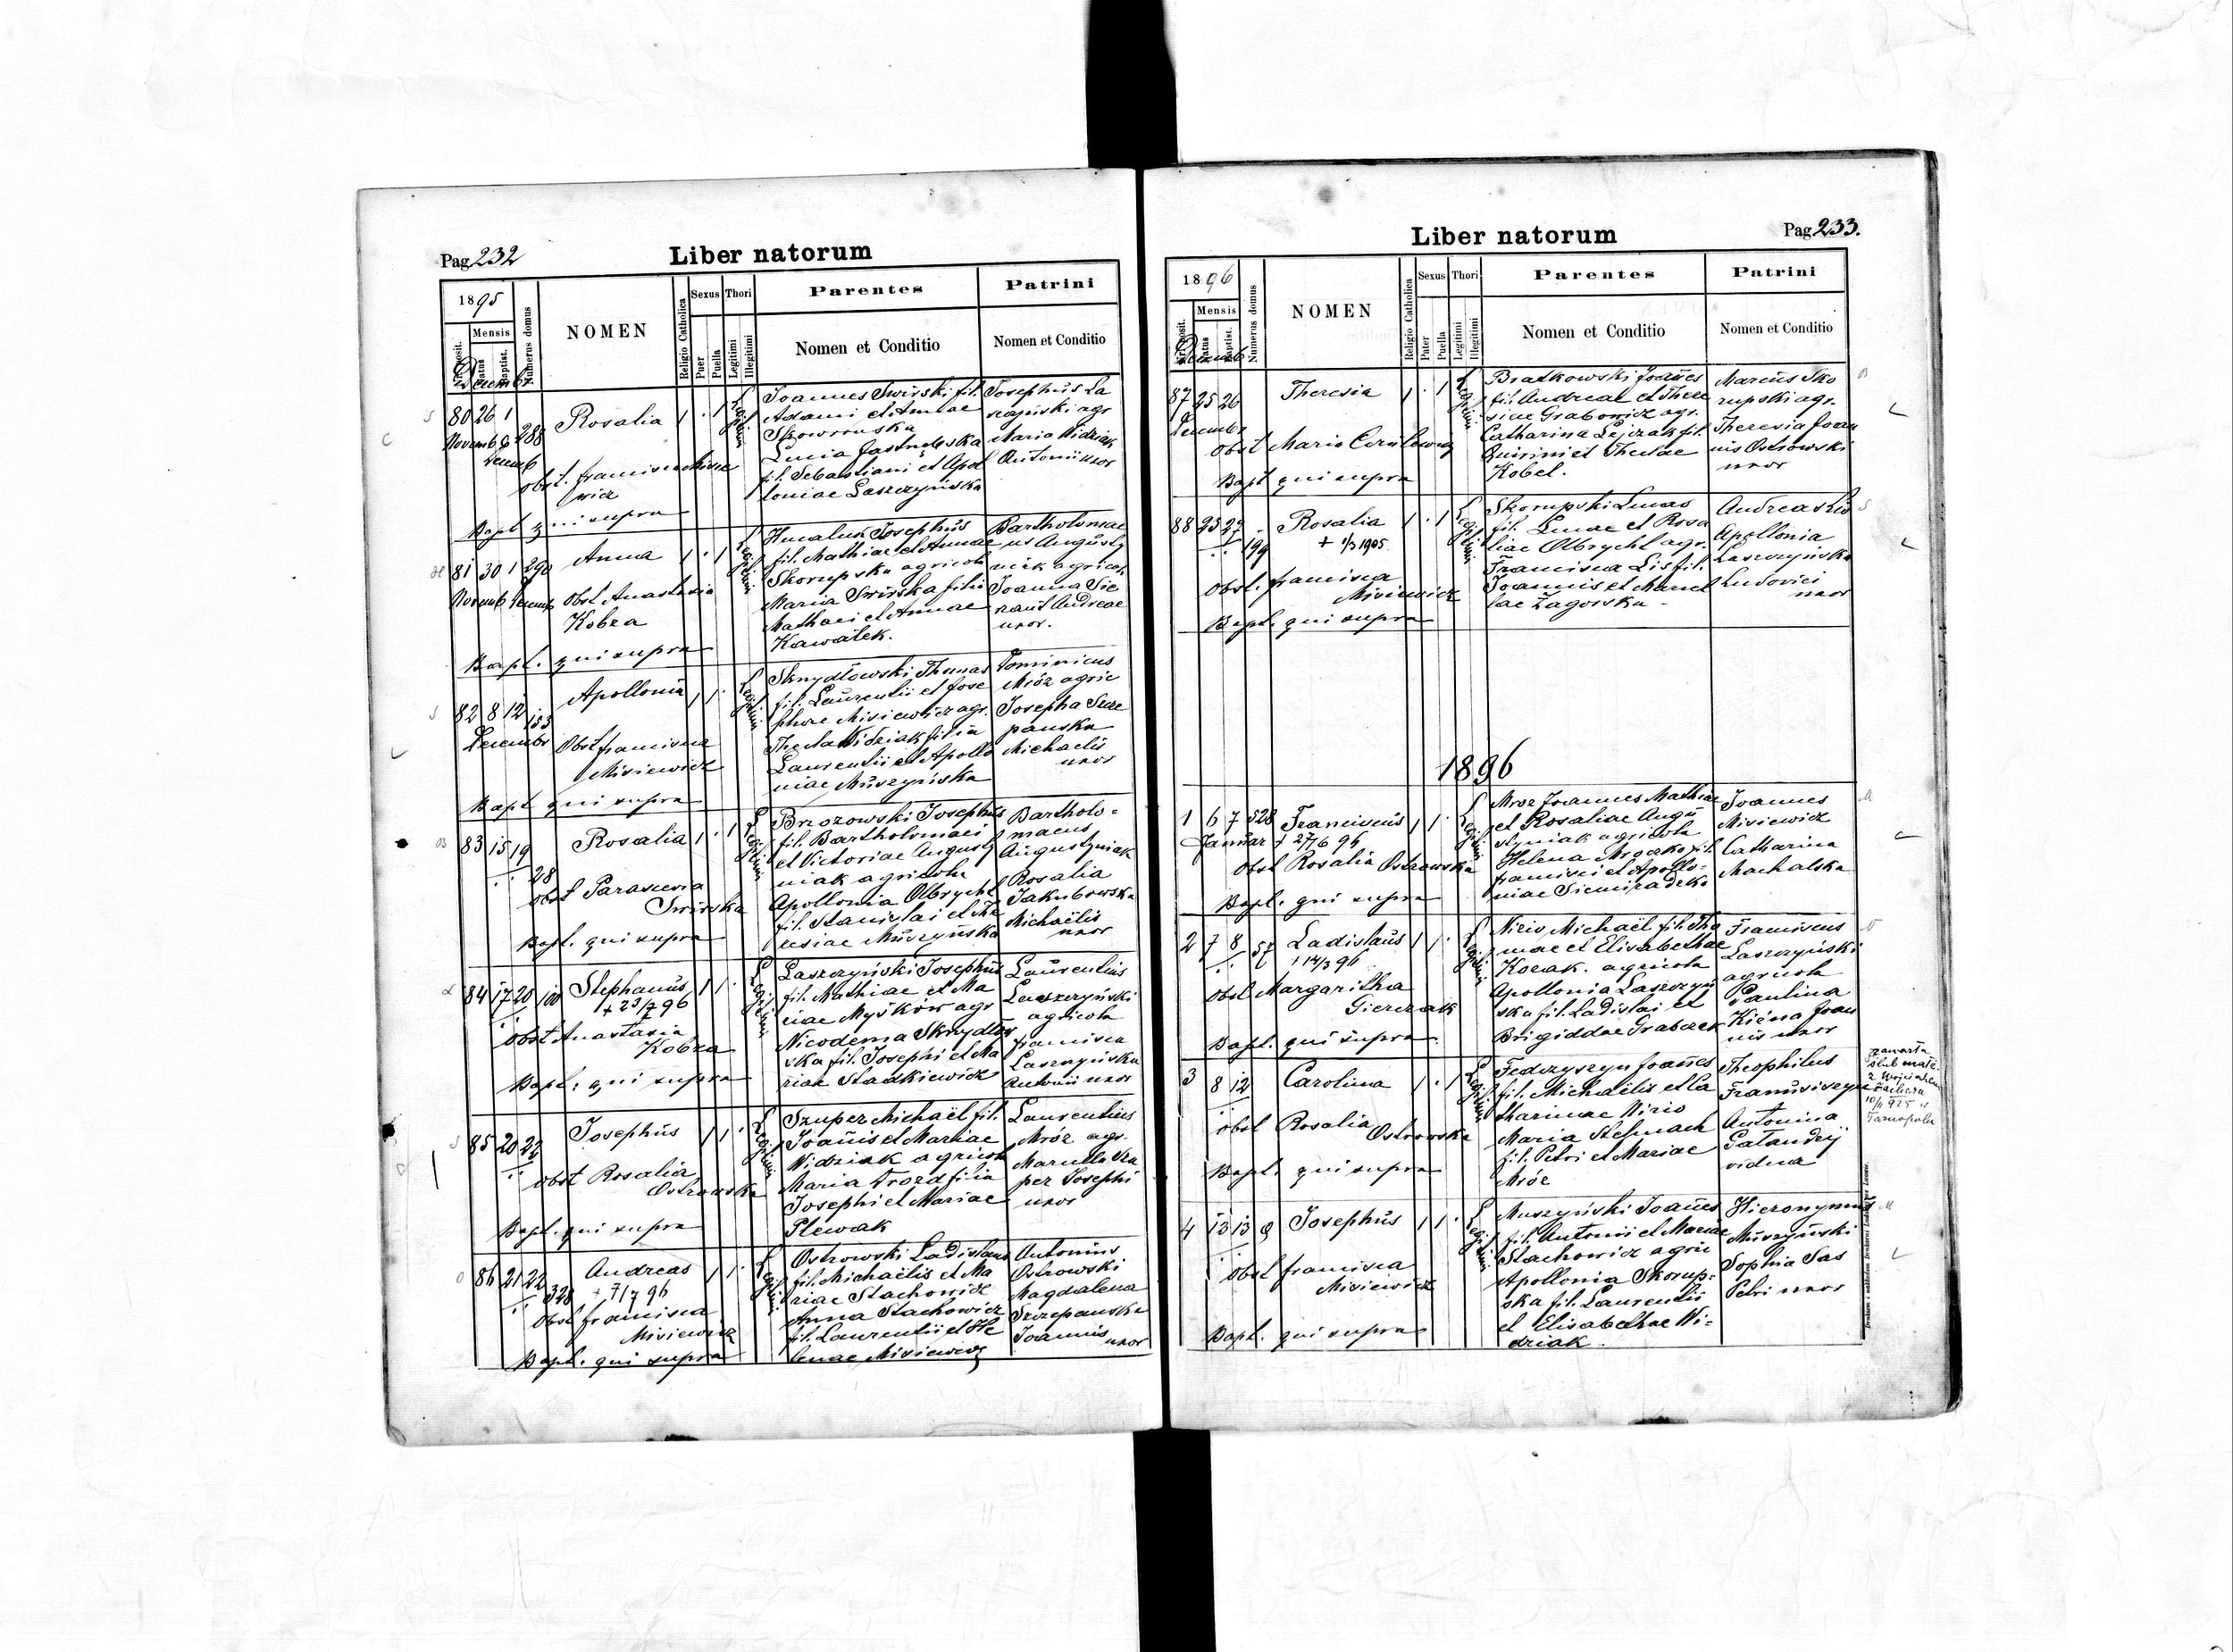 Pag 232
Liber natorum
1895
Mensis
Nr. posit.
Natus
Baptist.
Numerus domus
NOMEN
Religio Catholica
Sexus
Puer
Puella
Thori
Legitimi
Illegitimi
Parentes
Nomen et Conditio
Patrini
Nomen et Conditio
80 26 1 288
Novemb
Decemb
Rosalia 1 . 1
obst. Francisca Misie
wicz
Bapt qui supra
Legitimi
Joannes Swirski fil.
Adami et Annae
Skowronska
Lucia
fil. Sebastiani et Apol
loniae Laszczyńska
Josephus La
agr
Maria Widziak
Antonii uxor
81 30 1 290
Novemb Decemb
Anna 1 . 1
obst Anastasia
Kobza
Bapt. qui supra
Legitimi
Josephus
fil. Mathiae et Annae
Skorupska agricola
Maria Swirska filia
Mathaei et Annae
Kawałek.
Bartholomae
us Augusty
niak agricola
Joanna Sie
Andreae
uxor.
82 8 12 153
Decembr
Apollonia 1 1 .
Obst Francisca
Misiewicz
Bapt qui supra
Legitimi
Skrydłowski Thomas
fil. Laurentii et Jose
phae Misiewicz agr.
Thecla Widziak filia
Laurentii et Apollo
niae Muszyńska
Dominicus
Mróz agric
Josepha Szcze
panska
Michaelis
uxor
83 15 19 28
Rosalia 1 . 1
obst Parascevia
Swirska
Bapt. qui supra
Legitimi
Brzozowski Josephus
fil. Bartholomaei
et Victoriae Augusty
niak agricola
Apollonia Olbrycht
fil. Stanislai et The
resiae Muszyńska
Bartholo=
maeus
Augustyniak
Rosalia
Jakubowska
Michaëlis
uxor
84 17 20 100
Stephanus 1 1 .
+ 23/7 96
obst Anastasia
Kobza
Bapt: qui supra
Legitimi
Laszczyński Josephus
fil. Mathiae et Ma
riae Myśków agr
Nicodema Skrydłow
ska fil. Josephi et Ma
riae Stadkiewicz
Laurentius
Laszczyński
agricola
Francisca
Laszczyńska
Antonii uxor
85 20 22
Josephus 1 1 .
obst Rosalia
Ostrowska
Bapt. qui supra
Legitimi
Szuper Michaël fil.
Joańis et Mariae
Widziak agricola
Maria Drozd filia
Josephi et Mariae
Plewak
Laurentius
Mróz agr.
Marcella Szu
per Josephi
uxor
86 21 22 328
Andreas 1 1 .
+ 7/7 96
obst Francisca
Misiewicz
Bapt. qui supra
Legitimi
Ostrowski Ladislaus
fil. Michaëlis et Ma
riae Stachowicz
Anna Stachowicz
fil. Laurentii et He
lenae Misiewicz
Antonius
Ostrowski
Magdalena
Szczepanska
Joannis
uxor
Pag 233.
Liber natorum
1896
Mensis
Nr. posit.
Natus
Baptist.
Numerus domus
NOMEN
Religio Catholica
Sexus
Pater
Puella
Thori
Legitimi
Illegitimi
Parentes
Nomen et Conditio
Patrini
Nomen et Conditio
87 25 26
Decembr
Theresia 1 . 1
obst Maria
Bapt qui supra
Legitimi
Bratkowski Joańes
fil. Andreae et There
siae Grabowicz agr.
Catharina Lejczak fil.
Quirini et Theclae
Kobel.
Marcus Sko
rupski agr.
Theresia Joan
nis Ostrowski
uxor
88 25 27 199
Rosalia 1 . 1
+ 1/3 1905.
obst. Francisca
Misiewicz
Bapt. qui supra
Legitimi
Skorupski Lucas
fil. Lucae et Rosa
liae Olbrycht agr.
Francisca Lis fil.
Joannis et Marcel
lae Żagorska
Andreas Lis
Apollonia
Laszczyńska
Ludovici
uxor
1896
1 6 7 528
Januar
Franciscus 1 1 .
+ 27/6 96
obst Rosalia Ostrowska
Bapt. qui supra
Legitimi
Mroz Joannes Mathiae
et Rosaliae Augu
styniak agricola
Helena Mroczko fil.
Francisci et Apollo=
niae Siemiradzka
Joannes
Misiewicz
Catharina
Machalska
2 7 8 57
Ladislaus 1 1 .
+ 14/3 96
obst Margaritha
Gierczak
Bapt. qui supra
Legitimi
Niris Michaël fil. Tho
mae et Elisabethae
Kozak. agricola
Apollonia Laszczyń
ska fil. Ladislai et
Brigiddae Grabczak
Franciscus
Laszczyński
agricola
Paulina
Joan
nis uxor
3 8 12
Carolina 1 . 1
obst Rosalia
Ostrowska
Bapt. qui supra
Legitimi
Fedczyszyn Joańes
fil. Michaëlis et Ca
tharinae Niris
Maria Stelmach
fil. Petri et Mariae
Mróz
Theophilus
Antonina
Gałandzij
vidua
zawarła
ślub małż.
z Wojciechem
10/11 925 w
Tarnopolu
4 13 13 8
Josephus 1 1 .
obst Francisca
Misiewicz
Bapt. qui supra
Legitimi
Muszyński Joańes
fil. Antonii et Mariae
Stachowicz agric
Apollonia Skorup=
ska fil. Laurentii
et Elisabethae Wi=
dziak.
Hieronymus
Muszyński
Sophia Sas
Petri uxor